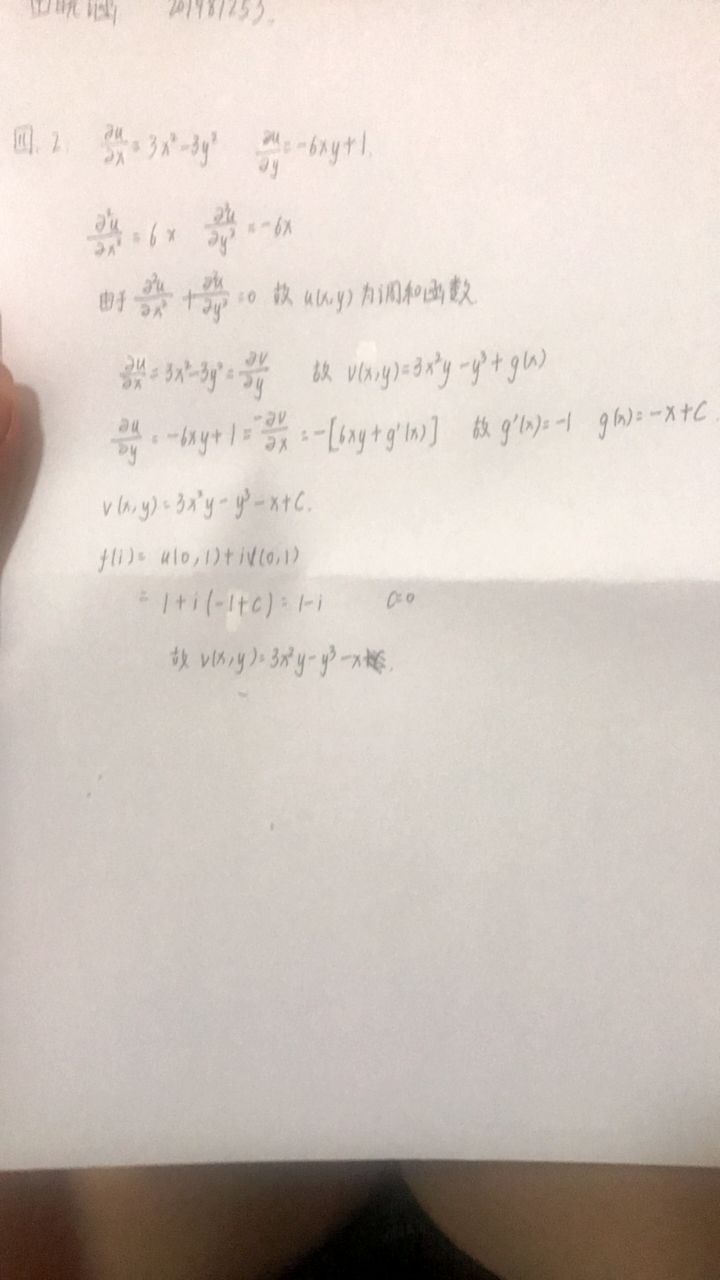 201981253.
四. 2. ∂u/∂x = 3x²-3y² ∂u/∂y = -6xy+1.
∂²u/∂x² = 6x ∂²u/∂y² = -6x
由于 ∂²u/∂x² + ∂²u/∂y² = 0 故 u(x,y) 为调和函数
∂u/∂x = 3x²-3y² = ∂v/∂y 故 v(x,y)=3x²y-y³+g(x)
∂u/∂y = -6xy+1 = -∂v/∂x = -[6xy+g'(x)] 故 g'(x)=-1 g(x)=-x+C.
v(x,y)=3x²y-y³-x+C.
f(i)= u(0,1)+iv(0,1)
= 1+i(-1+C)=1-i C=0
故 v(x,y)=3x²y-y³-x.